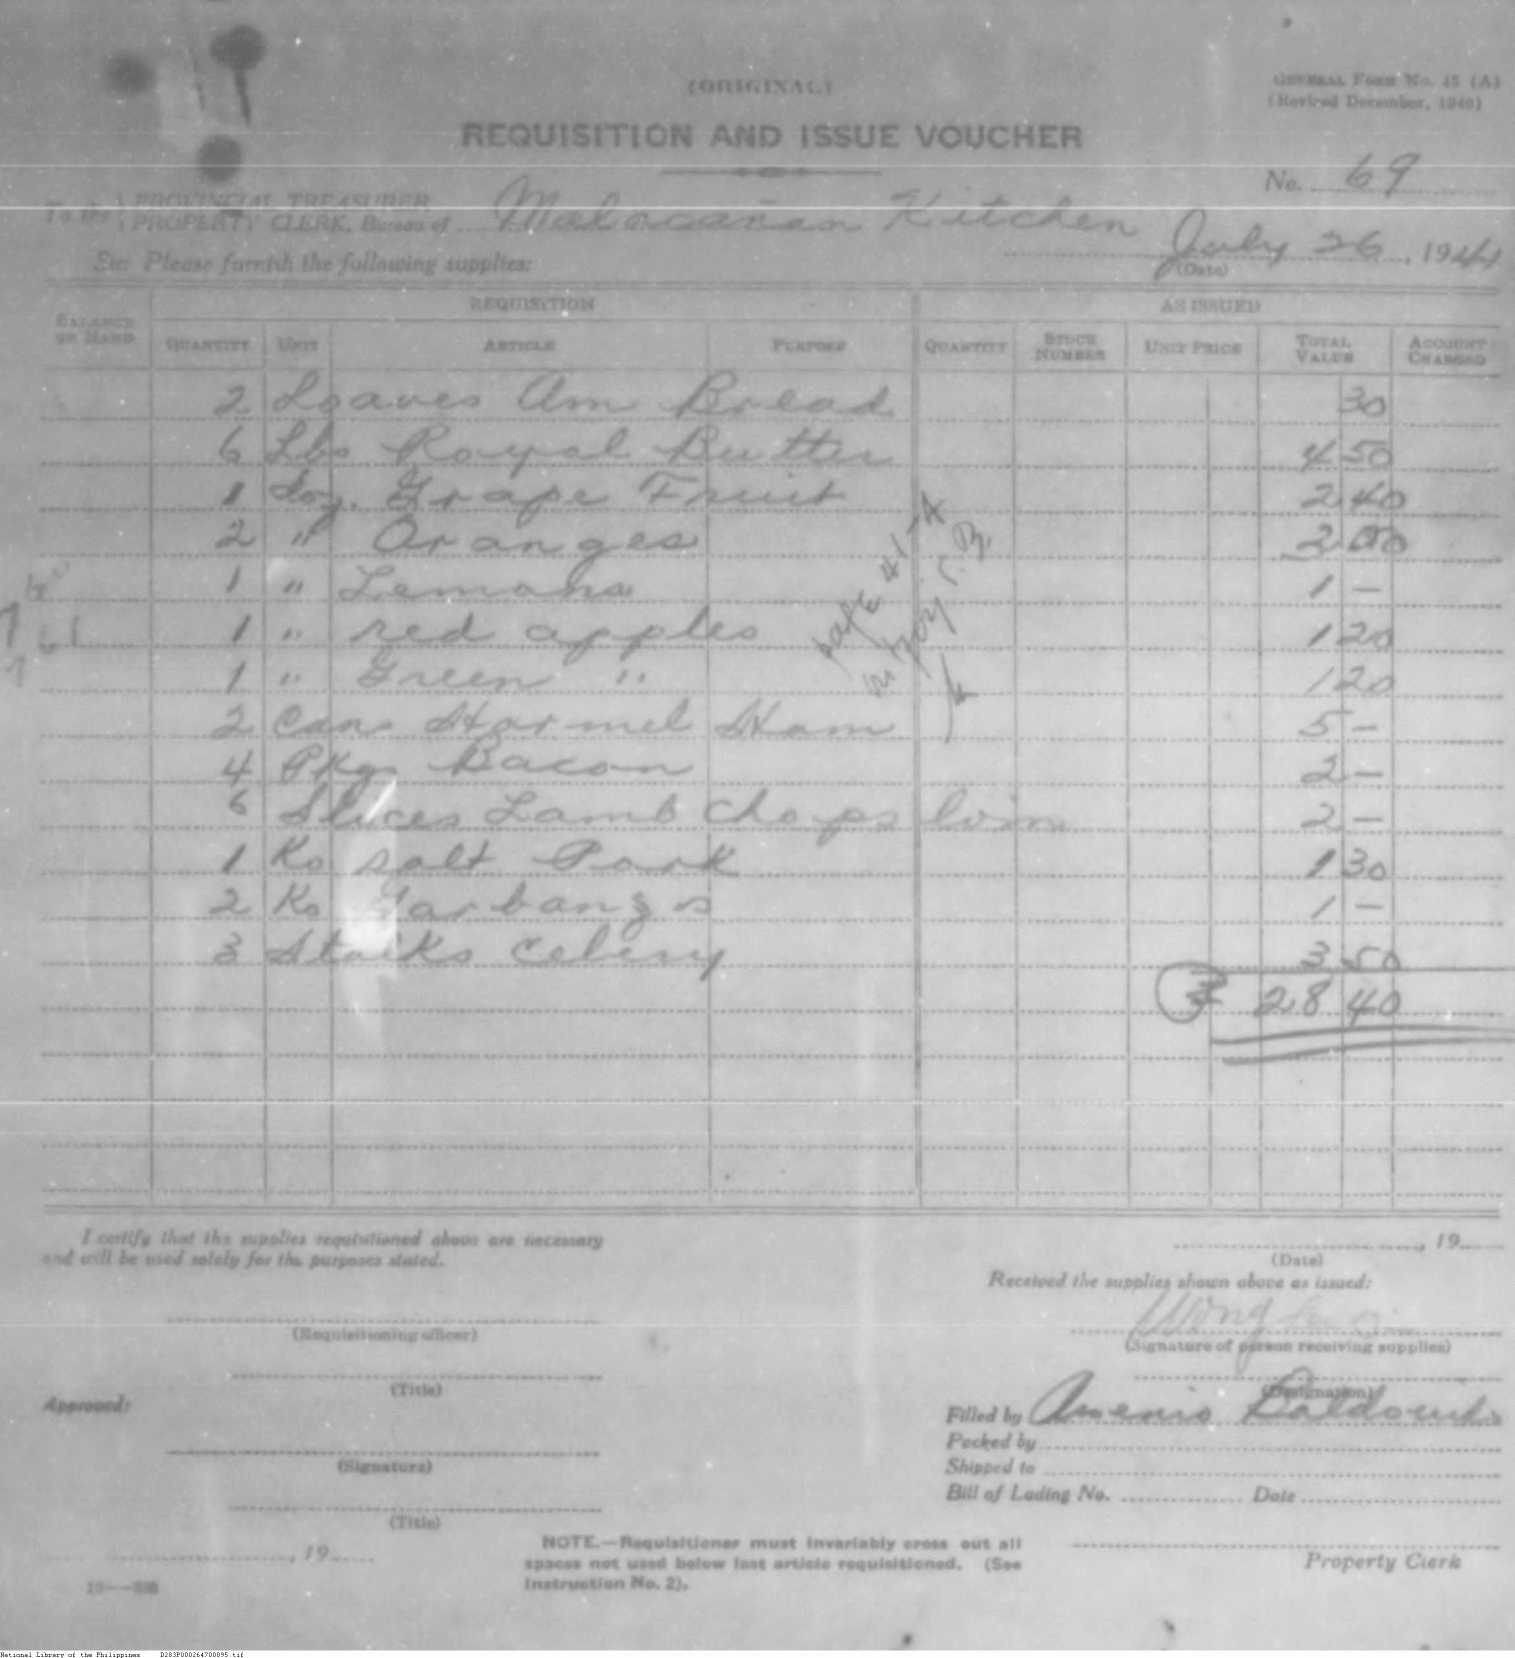 (ORIGINAL)
GENERAL FORM No. 45 (A)
(Revised December, 1940)
REQUISITION AND ISSUE VOUCHER
No. 69
To the PROVINCIAL TREASURER
PROPERTY CLERK, Bureau of Malacañan Kitchen
July 26, 1941
(Date)
Sir: Please furnish the following supplies:
BALANCE ON HAND REQUISITION AS ISSUED
QUANTITY UNIT ARTICLE PURPOSE QUANTITY STOCK NUMBER UNIT PRICE TOTAL VALUE ACCOUNT CHARGED
2 Loaves Am Bread 30
6 Lbs Royal Butter 4 50
1 Doz. Grape Fruit 2 40
2 " Oranges 2 00
1 " Lemons 1 —
1 " red apples 1 20
1 " Green " 1 20
2 Cans Hormel Ham 5 —
4 Pkgs Bacon 2 —
6 Slices Lamb Chops loin 2 —
1 Ko salt Pork 1 30
2 Ko Garbanzos 1 —
3 Stacks Celery 3 50
28 40
I certify that the supplies requisitioned above are necessary
and will be used solely for the purposes stated.
(Requisitioning officer)
(Title)
Approved:
(Signature)
(Title)
, 19
, 19
(Date)
Received the supplies shown above as issued:
Wong
(Signature of person receiving supplies)
(Designation)
Filled by Arsenio
Packed by
Shipped to
Bill of Lading No. Date
Property Clerk
NOTE.—Requisitioner must invariably cross out all
spaces not used below last article requisitioned. (See
Instruction No. 2).
National Library of the Philippines D283P000264700095.tif